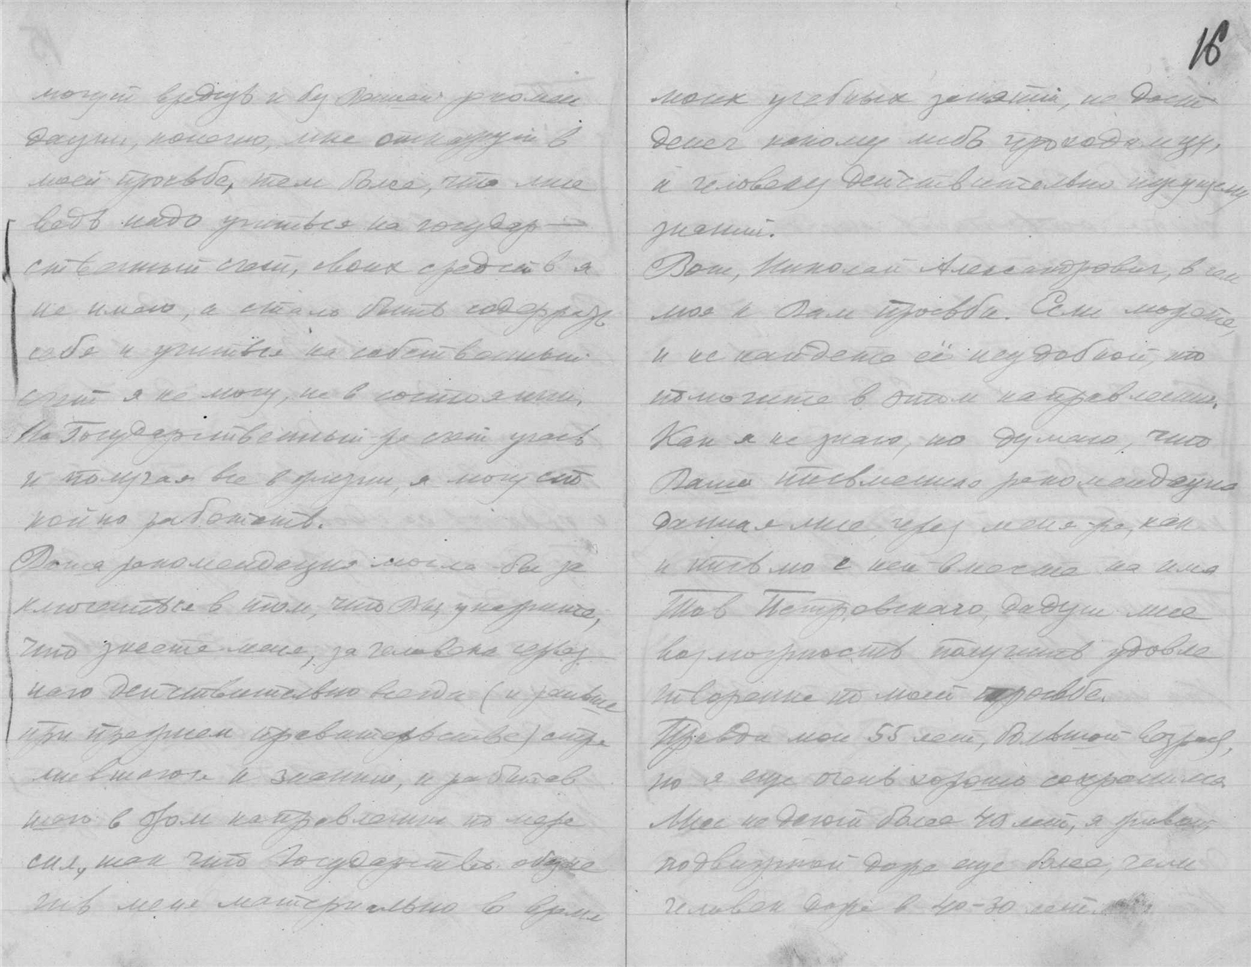 могут вредит и без Вашей рекомен
дации, конечно, мне откажут в
моей просьбе, тем более, что мне
ведь надо учиться на государ—
ственный счет, своих средств я
не имею, а стало быть содержать
себя и учиться на собственный
счет я не могу, не в состоянии.
На Государственный же счет учась
и получая все в жизни, я могу спо
койно работать.
Ваша рекомендация могла бы за
ключаться в том, что Вы укажите,
что знаете меня, за человека через
чего действительно всегда (и раньше
при прежнем правительстве) стре
мившагося к знанию, и работав
шаго в этом направлении по мере
сил, так что Государство обезпе
чив меня материально во время
16
моих учебных занятий, не даст
денег какому либо проходимцу,
а человеку действительно ищущему
знаний.
Вот, Николай Александрович, в чем
моя к Вам просьба. Если можете,
и не найдете её неудобной, то
помогите в этом направлении.
Как я не знаю, но думаю, что
Ваша письменная рекомендация
данная мне через меня же, как
и письмо с ней вместе на имя
Тов Петровскаго, дадут мне
возможность получить удовле
творение по моей просьбе.
Правда мои 55 лет, большой возраст,
но я еще очень хорошо сохранился
Мне не дают более 40 лет, я живой
подвижной даже еще более, чем
человек даже в 40-30 лет.